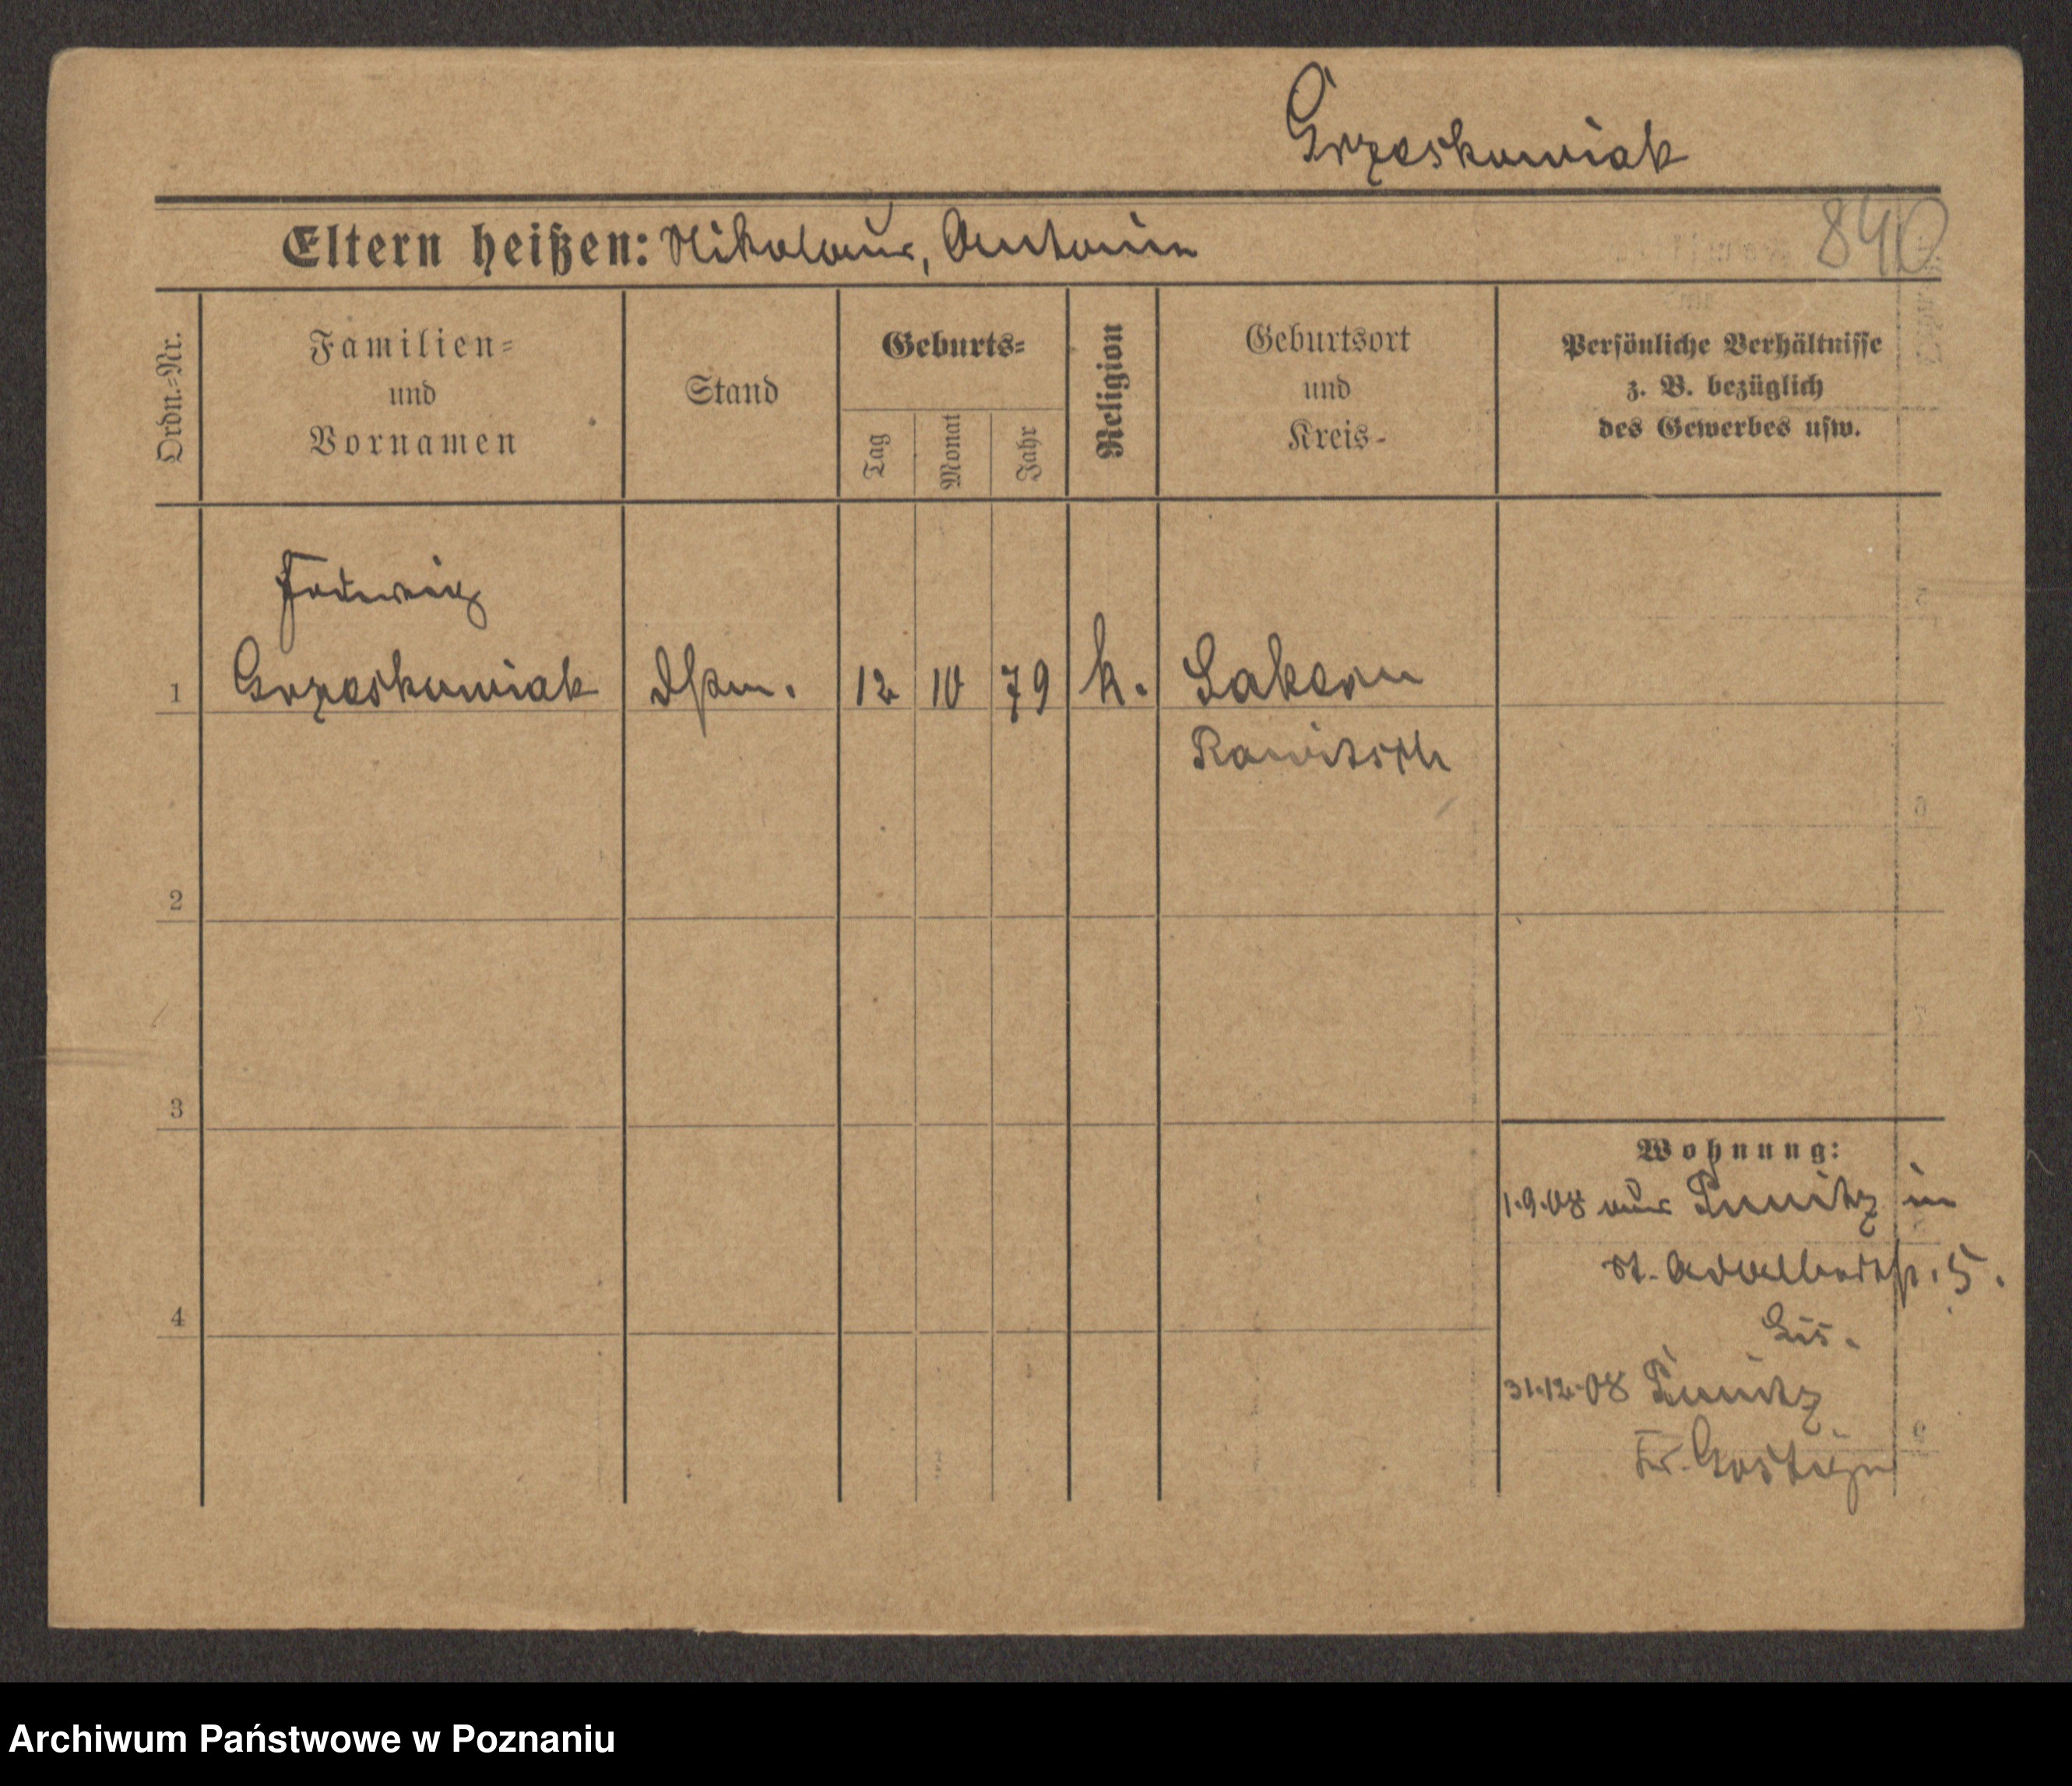 Grzeskowiak
Eltern heißen: Nikolaus, Antonin
840
Ordn.-Nr.
Familien-
und
Vornamen
Stand
Geburts-
Tag
Monat
Jahr
Religion
Geburtsort
und
Kreis-
Persönliche Verhältnisse
z. B. bezüglich
des Gewerbes usw.
1
Grzeskowiak
12 10 79 k.
Rawitsch
2
3
4
Wohnung:
1.9.08 aus Punitz in
St. Adalbertstr. 5.
31.12.08 Punitz
Kr. Gostyn
Archiwum Państwowe w Poznaniu